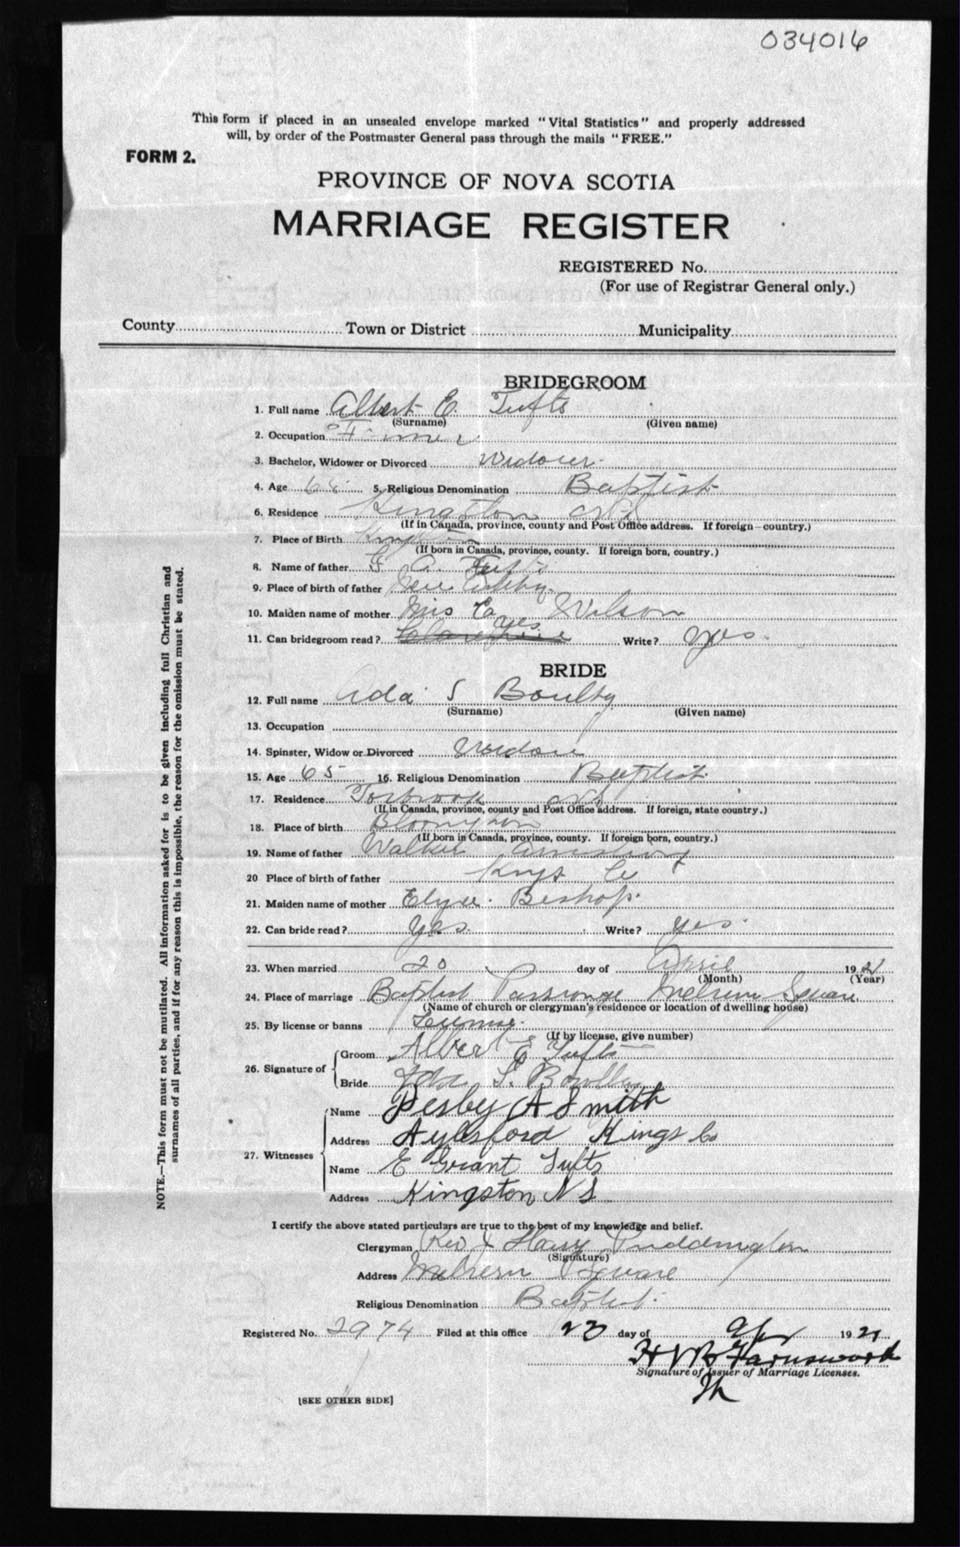 034016
This form if placed in an unsealed envelope marked "Vital Statistics" and properly addressed
will, by order of the Postmaster General pass through the mails "FREE."
FORM 2.
PROVINCE OF NOVA SCOTIA
MARRIAGE REGISTER
REGISTERED No.
(For use of Registrar General only.)
County Town or District Municipality
BRIDEGROOM
1. Full name Albert E. Tufts
(Surname) (Given name)
2. Occupation
3. Bachelor, Widower or Divorced Widower
4. Age 5. Religious Denomination Baptist
6. Residence Kingston N.S.
(If in Canada, province, county and Post Office address. If foreign—country.)
7. Place of Birth Kingston
(If born in Canada, province, county. If foreign born, country.)
8. Name of father A. Tufts
9. Place of birth of father
10. Maiden name of mother Mrs Wilson
11. Can bridegroom read? yes Write? yes
BRIDE
12. Full name Ada S
(Surname) (Given name)
13. Occupation
14. Spinster, Widow or Divorced Widow
15. Age 65 16. Religious Denomination Baptist
17. Residence Torbrook N.S.
(If in Canada, province, county and Post Office address. If foreign, state country.)
18. Place of birth
(If born in Canada, province, county. If foreign born, country.)
19. Name of father Walker Armstrong
20 Place of birth of father Kings Co
21. Maiden name of mother Bishop
22. Can bride read? Yes Write? yes
23. When married 20 day of April 1921
(Month) (Year)
24. Place of marriage Baptist Parsonage Melvern Square
(Name of church or clergyman's residence or location of dwelling house)
25. By license or banns License
(If by license, give number)
26. Signature of
Groom Albert E Tufts
Bride Ada S.
27. Witnesses
Name A Smith
Address Aylesford Kings Co
Name E Grant Tufts
Address Kingston N S
I certify the above stated particulars are true to the best of my knowledge and belief.
Clergyman Rev Puddington
(Signature)
Address Melvern Square
Religious Denomination Baptist
Registered No. 2974 Filed at this office 23 day of Apr 1921
Farnsworth
Signature of Issuer of Marriage Licenses.
[SEE OTHER SIDE]
NOTE.—This form must not be mutilated. All information asked for is to be given including full Christian and
surnames of all parties, and if for any reason this is impossible, the reason for the omission must be stated.